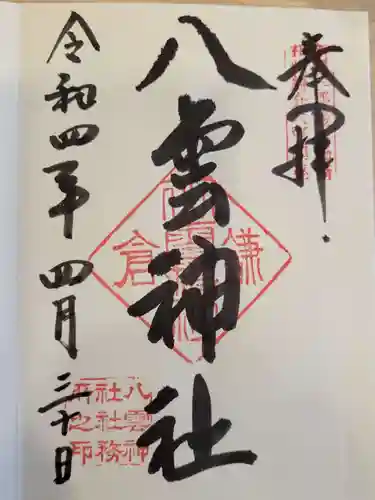 奉拝
八雲神社
令和四年四月三十日
鎌倉
八雲神
社社務
所之印